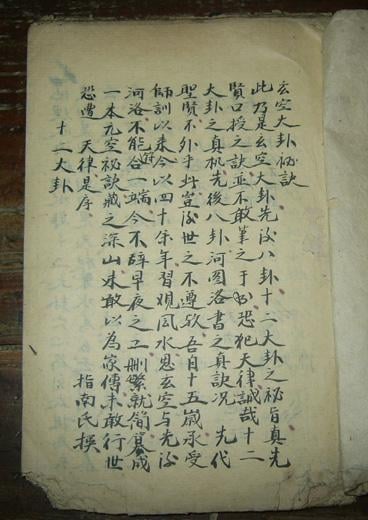 玄空大卦秘訣
此乃是玄空大卦先後八卦十二大卦之秘旨真先
賢口授之訣並不敢筆之于書恐犯天律誠哉十二
大卦之真机先後八卦河图洛書之真訣况 先代
聖賢不外乎此豈後世之不遵救吾自十五歲承受
師訓以来今以四十余年習观風水思玄空与先後
河洛不能符合一端今不辞早夜之工刪繁就简纂成
一本元空秘訣藏之深山未敢以為家傳未敢行世
恐遭 天律是序 指南氏撰
十二大卦